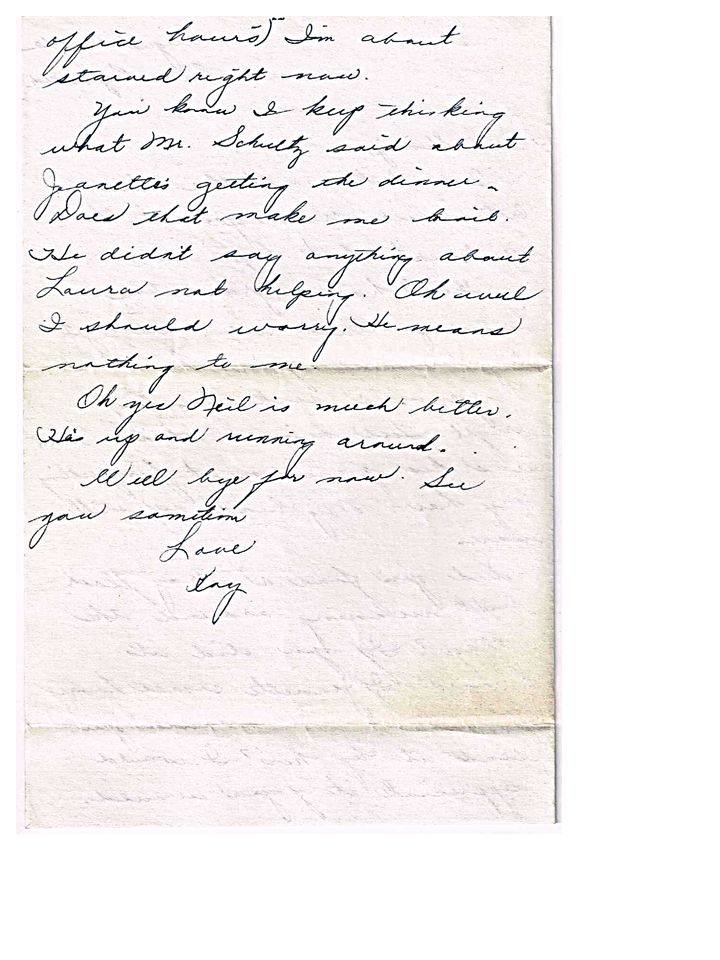 office hours) I'm about
starved right now.
You know I keep thinking
what Mr. Schultz said about
Jeanette's getting the dinner.
Does that make me boil.
He didn't say anything about
Laura not helping. Oh well
I should worry. He means
nothing to me.
Oh yes Neil is much better.
He's up and running around.
Well bye for now. See
you sometim
Love
Kay